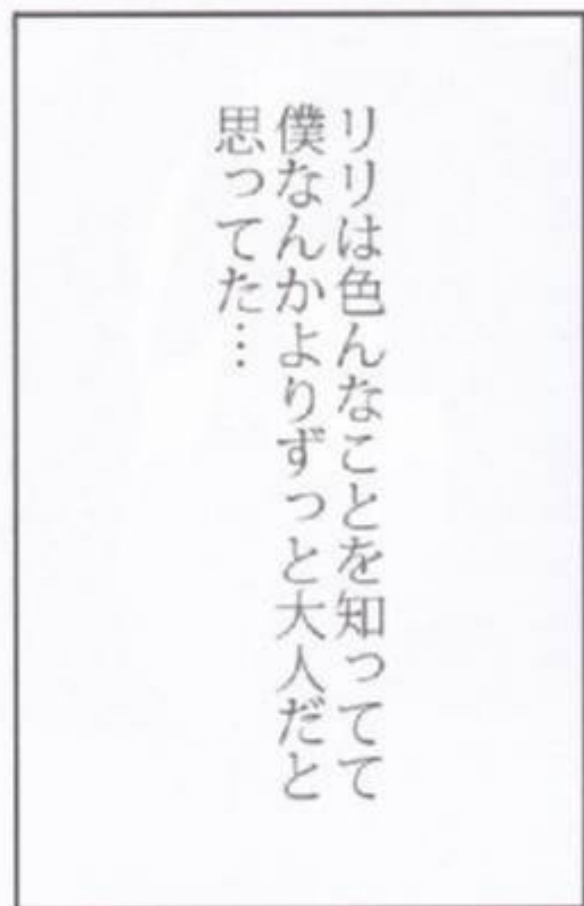 リリは色んなことを知ってて
僕なんかよりずっと大人だと
思ってた…